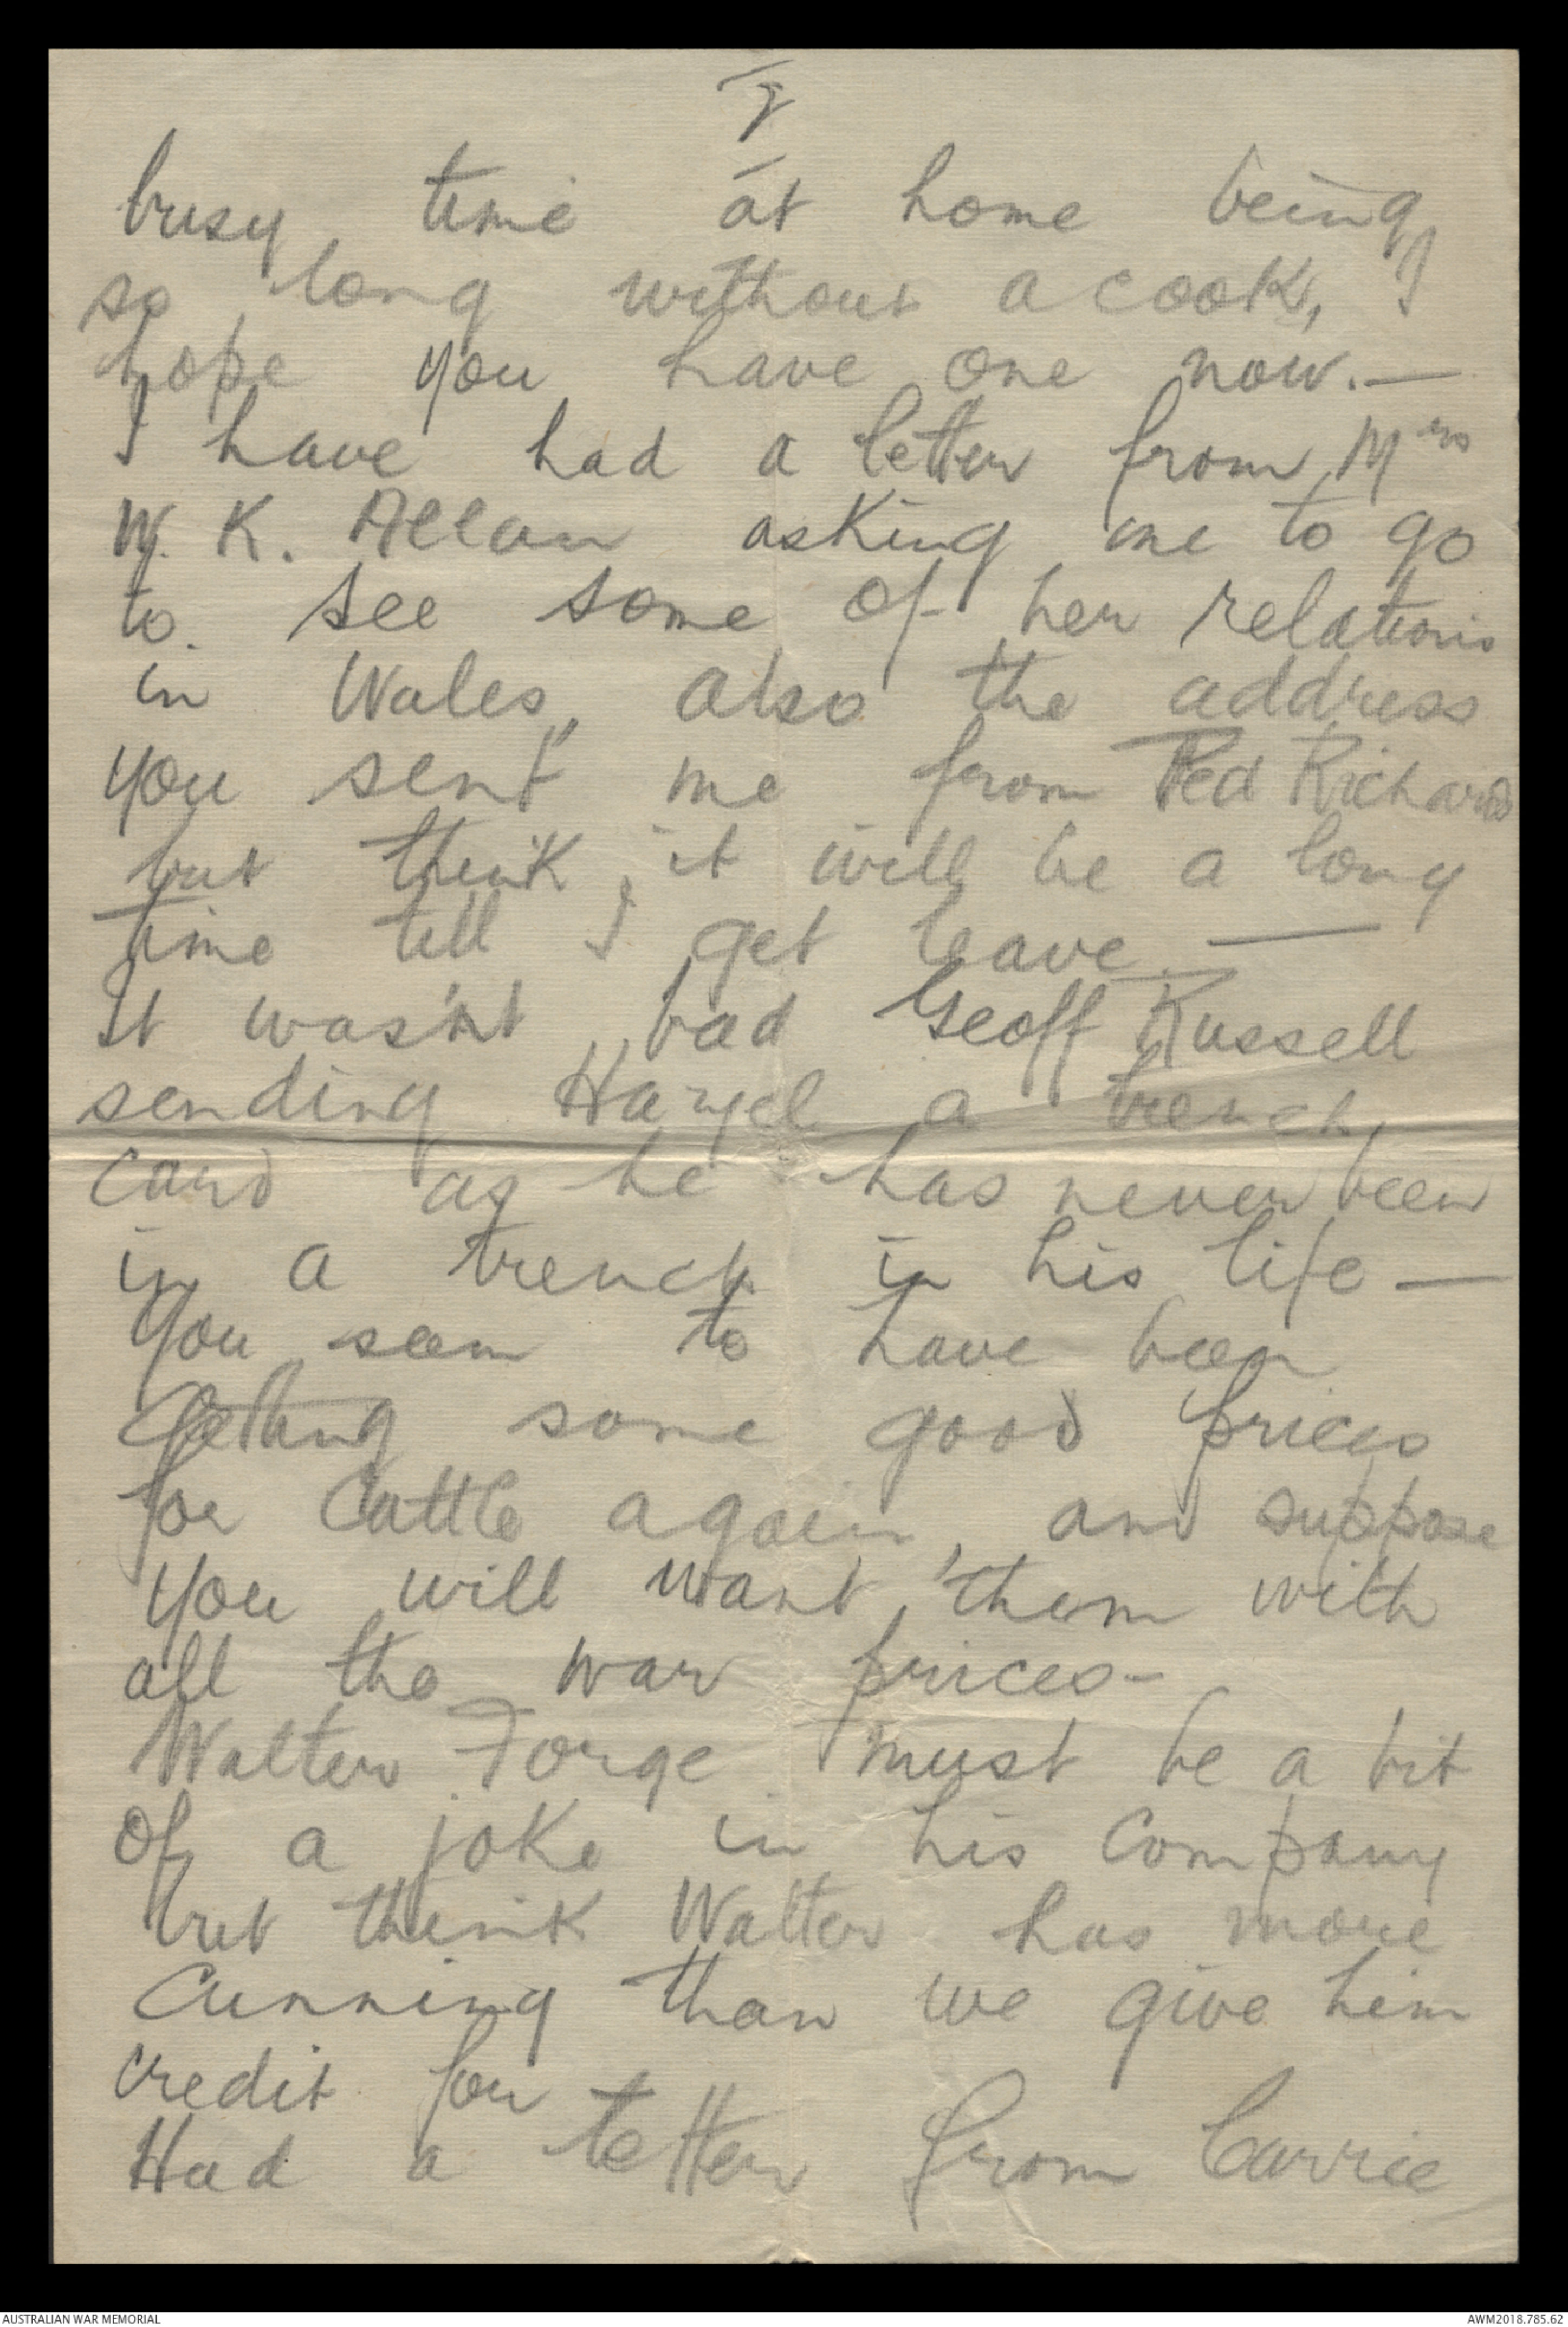 busy time at home being
so long without a cook, I
hope you have one now. —
I have had a letter from Mrs
W. K. Allan asking me to go
to. see some of her relations
in Wales, also the address
you sent me from Ted Richards
but think it will be a long
time till I get leave. —
It wasn't bad Geoff Russell
sending Hazel a trench
card as he has never been
in a trench in his life —
You seem to have been
Getting some good prices
for Cattle again, and suppose
you will want them with
all the war prices -
Walter Forge must be a bit
of a joke in his Company
but think Walter has more
Cunning than we give him
credit for
Had a letter from Carrie
AUSTRALIAN WAR MEMORIAL
AWM2018.785.62